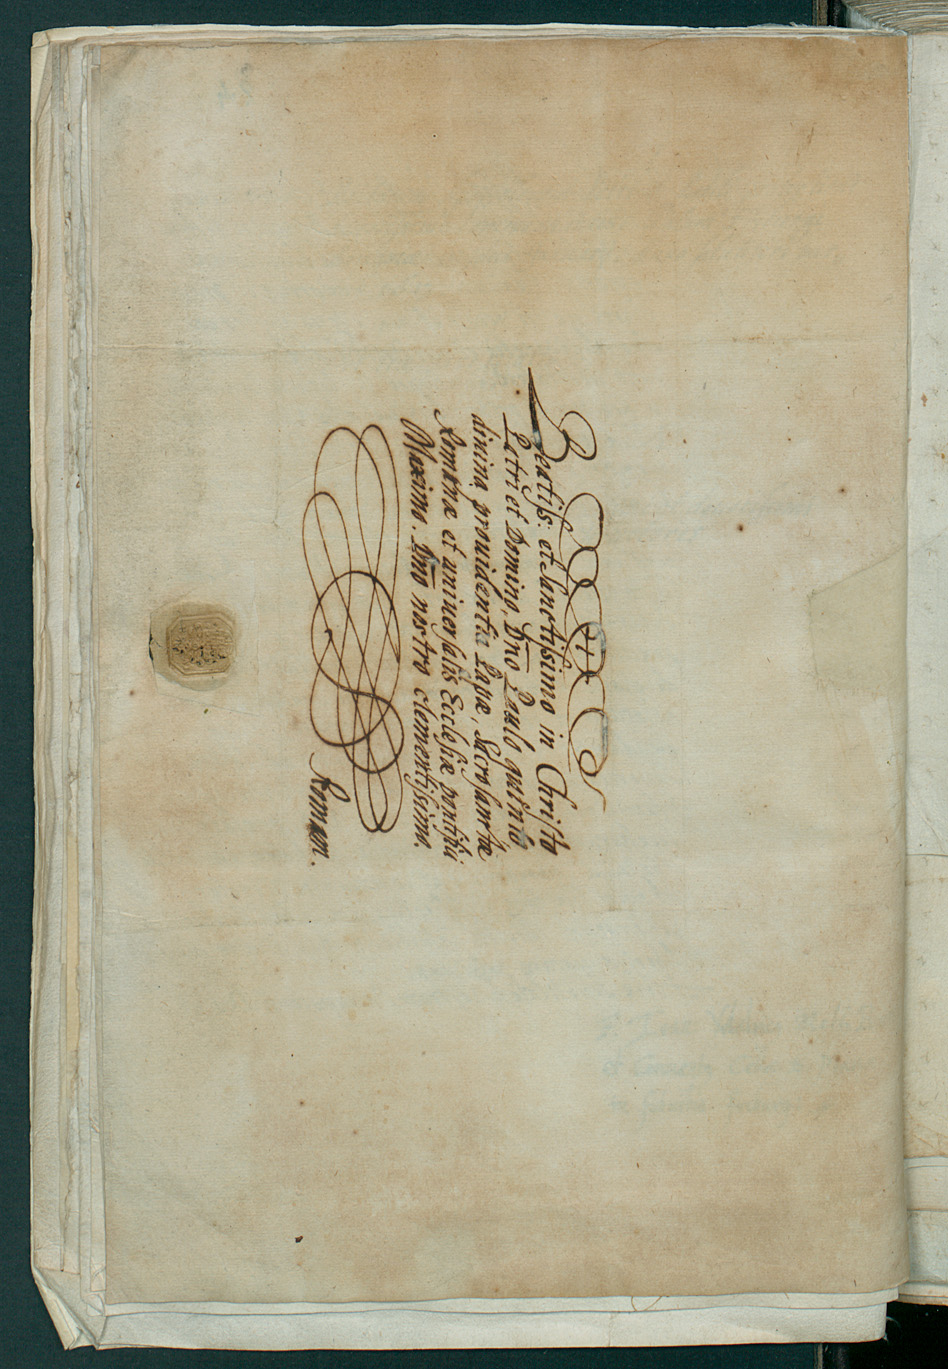 Beatiss: et Sanctissimo in Christo
Patri et Domino, Dno Paulo quinto
diuina prouidentia Papæ, Sacrosanctæ
Romanæ et uniuersalis Ecclesiæ pontifici
Maximo. Dno nostro clementissimo.
Romam.